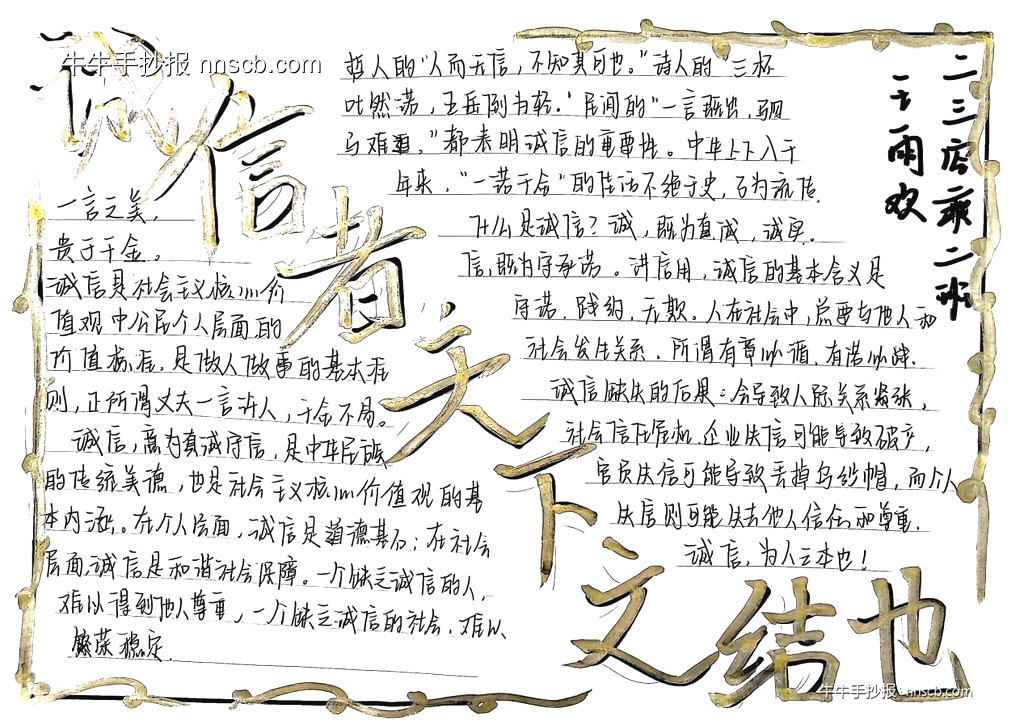 牛牛手抄报 nnscb.com
诚信者,天下之结也
二三店乘二班
王雨欢
一言之美,
贵于千金。
诚信是社会主义核心价
值观中公民个人层面的
价值标准,是做人做事的基本准
则,正所谓丈夫一言许人,千金不易。
诚信,意为真诚守信,是中华民族
的传统美德,也是社会主义核心价值观的基
本内涵。在个人层面,诚信是道德基石;在社会
层面,诚信是和谐社会保障。一个缺乏诚信的人,
难以得到他人尊重,一个缺乏诚信的社会,难以
繁荣稳定.
哲人的"人而无信,不知其可也。"诗人的"三杯
吐然诺,五岳倒为轻."民间的"一言既出,驷
马难追,"都表明诚信的重要性。中华上下八千
年来,"一诺千金"的佳话不绝于史,广为流传.
什么是诚信?诚,既为真诚,诚实.
信,既为守承诺。讲信用,诚信的基本含义是
守诺,践约,无欺.人在社会中,总要与他人和
社会发生关系.所谓有章必循,有诺必践.
诚信缺失的后果:会导致人际关系紧张,
社会信任危机.企业失信可能导致破产,
官员失信可能导致丢掉乌纱帽,而个人
失信则可能失去他人信任和尊重.
诚信,为人之本也!
牛牛手抄报 nnscb.com